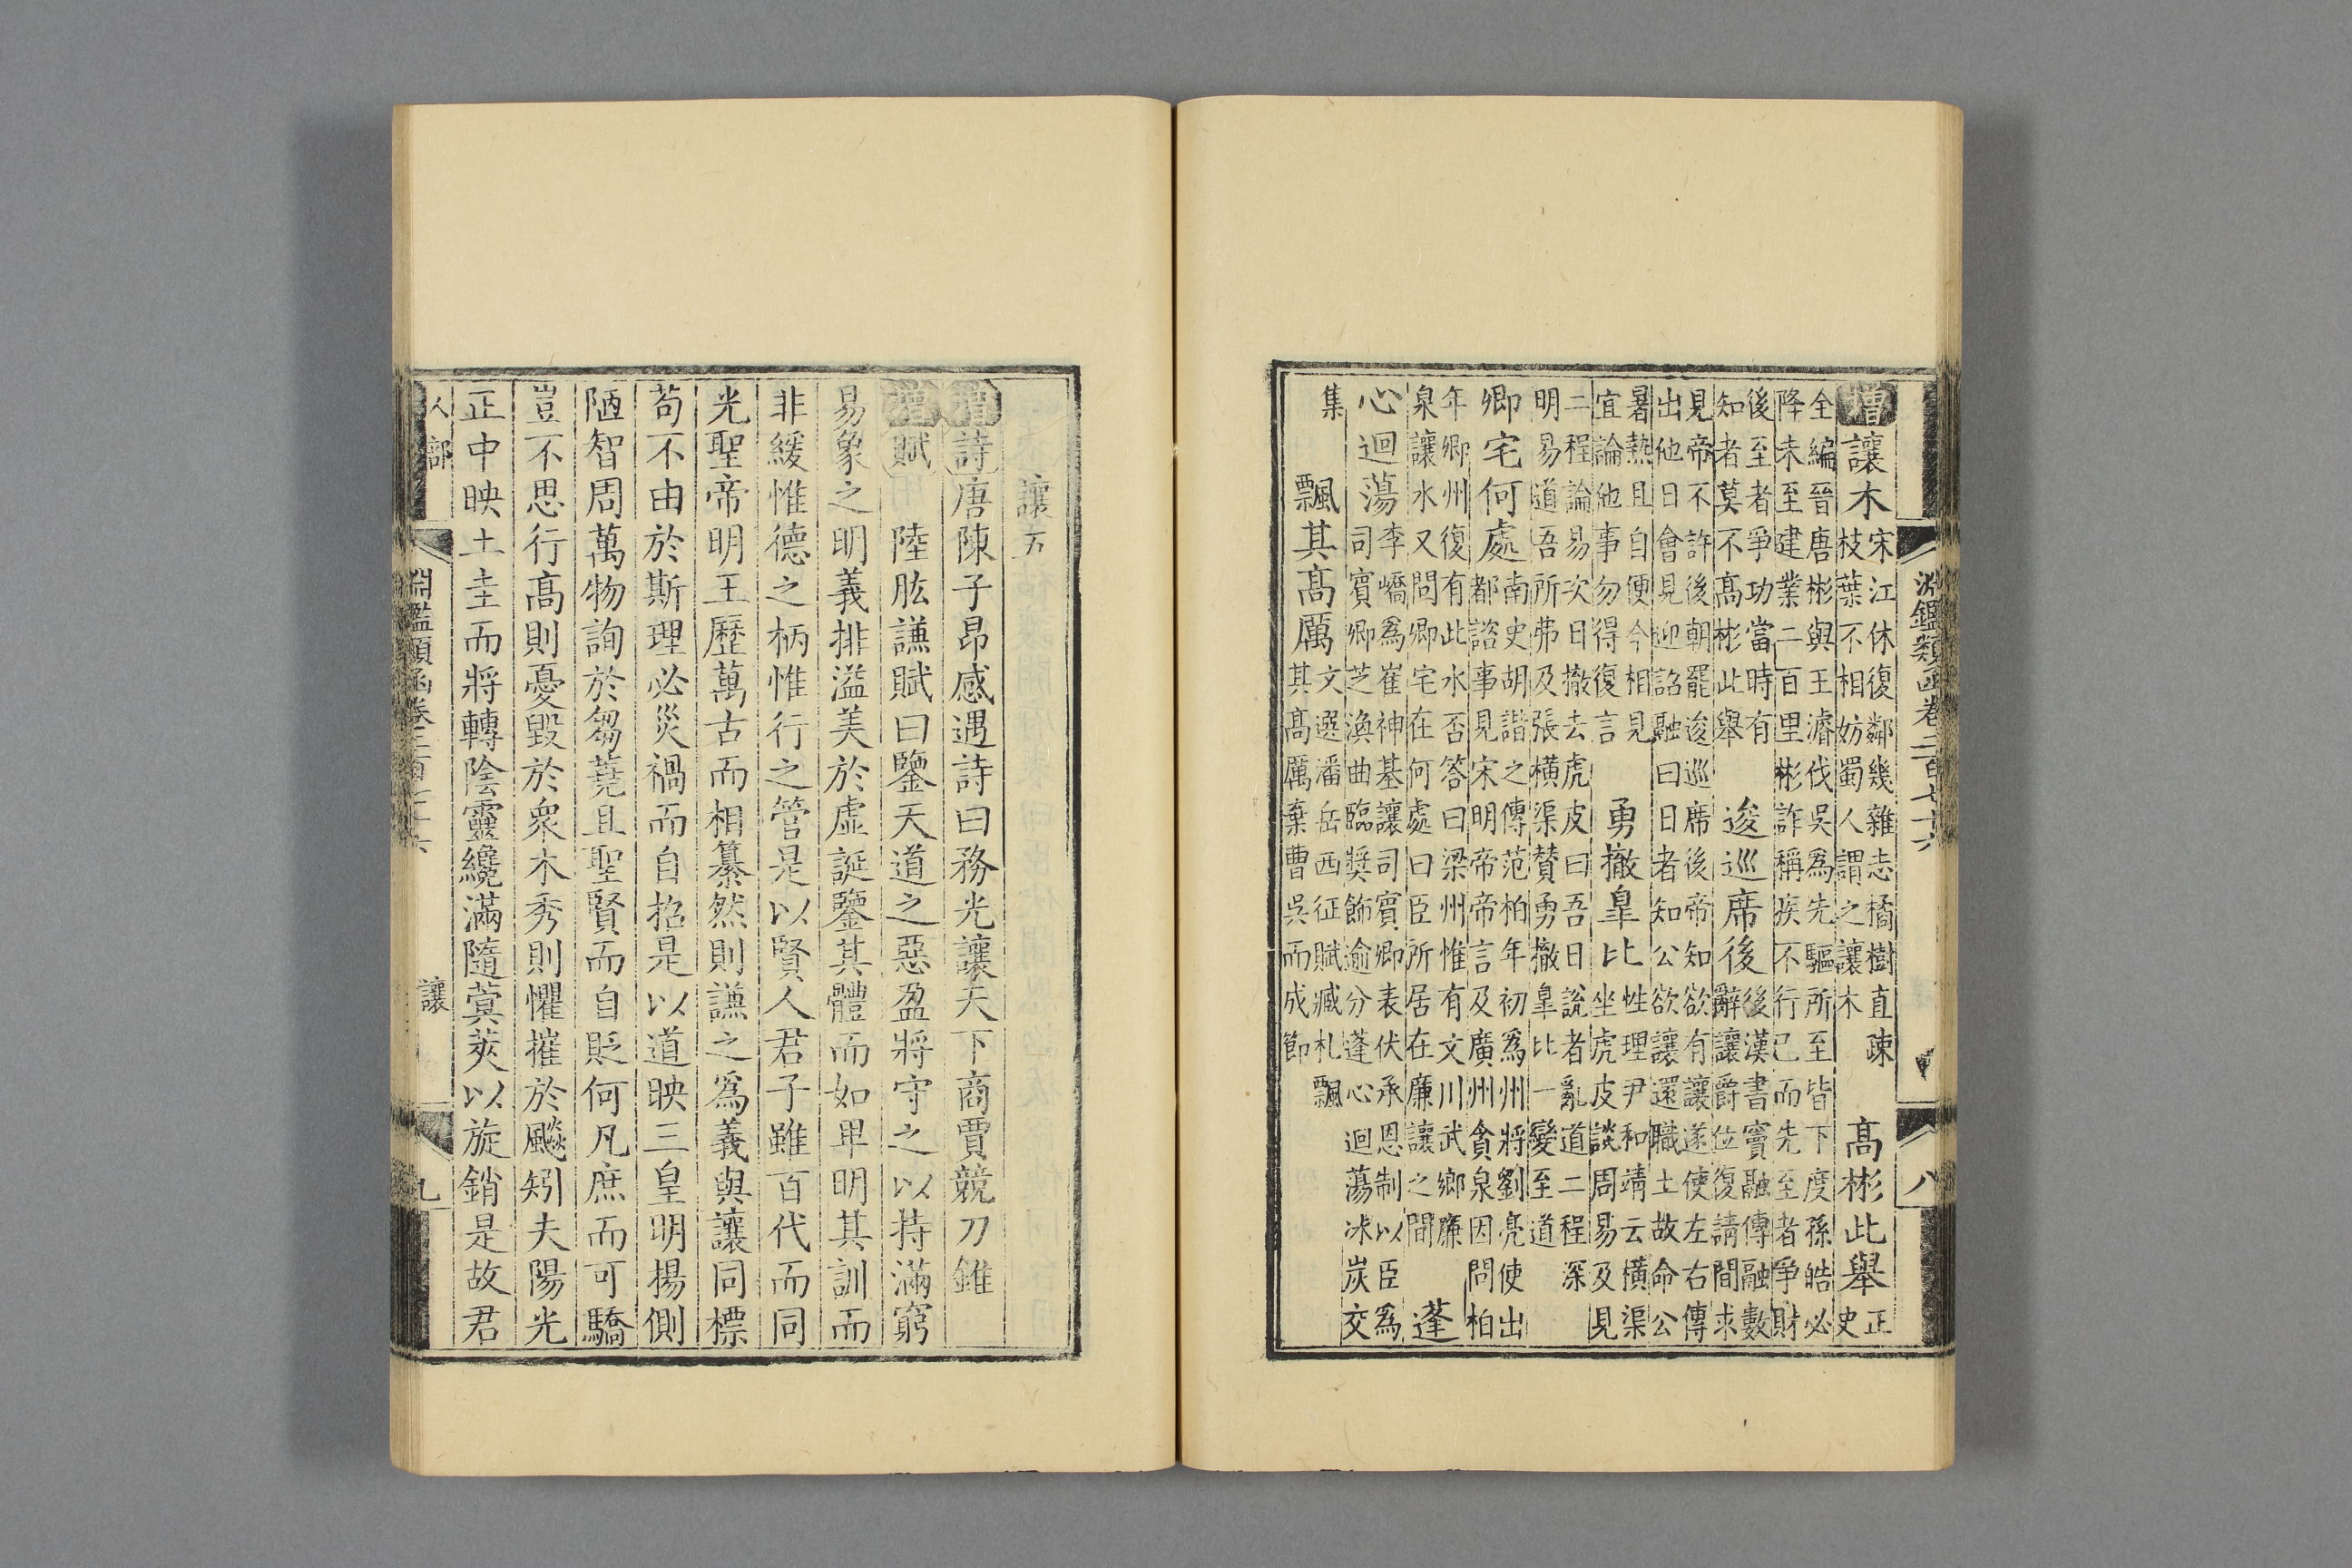 淵鑑類函卷二百七十六 八
增讓木宋江休復鄰幾雜志橘樹直疎
枝葉不相妨蜀人謂之讓木 高彬此舉正
史
全編晉唐彬與王濬伐吳爲先驅所至皆下度孫皓必
降未至建業二百里彬詐稱疾不行已而先至者爭財
後至者爭功當時有
知者莫不高彬此舉 逡巡席後後漢書竇融傳融數
辭讓爵位復請間求
見帝不許後朝罷逡巡席後帝知欲有讓遂使左右傳
出他日會見迎詔融曰日者知公欲讓還職土故命公
暑熱且自便今相見
宜論他事勿得復言 勇撤皐比性理尹和靖云橫渠
坐虎皮談周易及見
二程論易次日撤去虎皮曰吾日說者亂道二程深
明易道吾所弗及張橫渠贊勇撤皐比一變至道
卿宅何處南史胡諧之傳范柏年初爲州將劉亮使出
都諮事見宋明帝帝言及廣州貪泉因問柏
年卿州復有此水否答曰梁州惟有文川武鄉廉
泉讓水又問卿宅在何處曰臣所居在廉讓之間 蓬
心迴蕩李嶠爲崔神基讓司賓卿表伏承恩制以臣爲
司賓卿芝渙曲臨奬飾逾分蓬心迴蕩冰炭交
集 飄其高厲文選潘岳西征賦臧札飄
其高厲棄曹吳而成節
讓五
增詩唐陳子昂感遇詩曰務光讓天下商賈競刀錐
增賦 陸肱謙賦曰鑒天道之惡盈將守之以持滿窮
易象之明義排溢美於虛誕鑒其體而如卑明其訓而
非緩惟德之柄惟行之管是以賢人君子雖百代而同
光聖帝明王歷萬古而相纂然則謙之爲義與讓同標
苟不由於斯理必災禍而自招是以道映三皇明揚側
陋智周萬物詢於芻蕘且聖賢而自貶何凡庶而可驕
豈不思行高則憂毀於衆木秀則懼摧於飈矧夫陽光
正中映土圭而將轉陰靈纔滿隨蓂莢以旋銷是故君
人部 淵鑑類函卷二百七十六 讓 九